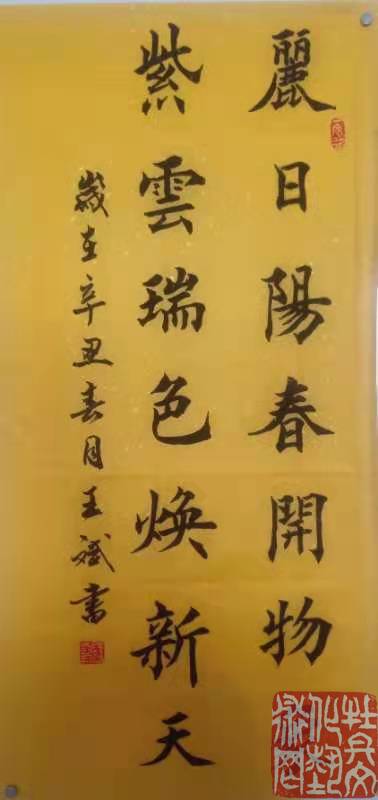 麗日陽春開物
紫雲瑞色煥新天
歲在辛丑春月王斌書